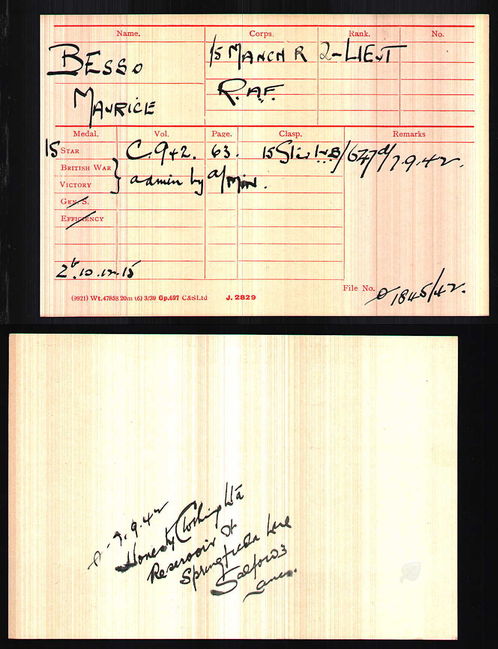 Name. Corps. Rank. No.
BESSO 15 MANCH R 2-LIEUT
MAURICE R.A.F.
Medal. Vol. Page. Clasp. Remarks
15 STAR C.942. 63. 15 Star 7.9.42.
BRITISH WAR
VICTORY admin by a/Min.
GEN. S.
EFFICIENCY
10.12.15
File No. 1845/42.
(9921) Wt. 47858 20m (6) 3/39 Gp. 697 C&SLtd J. 2829
7.9.42
Honesty Clothing Ltd
Reservoir St
Springfield Lane
Salford 3
Lancs.